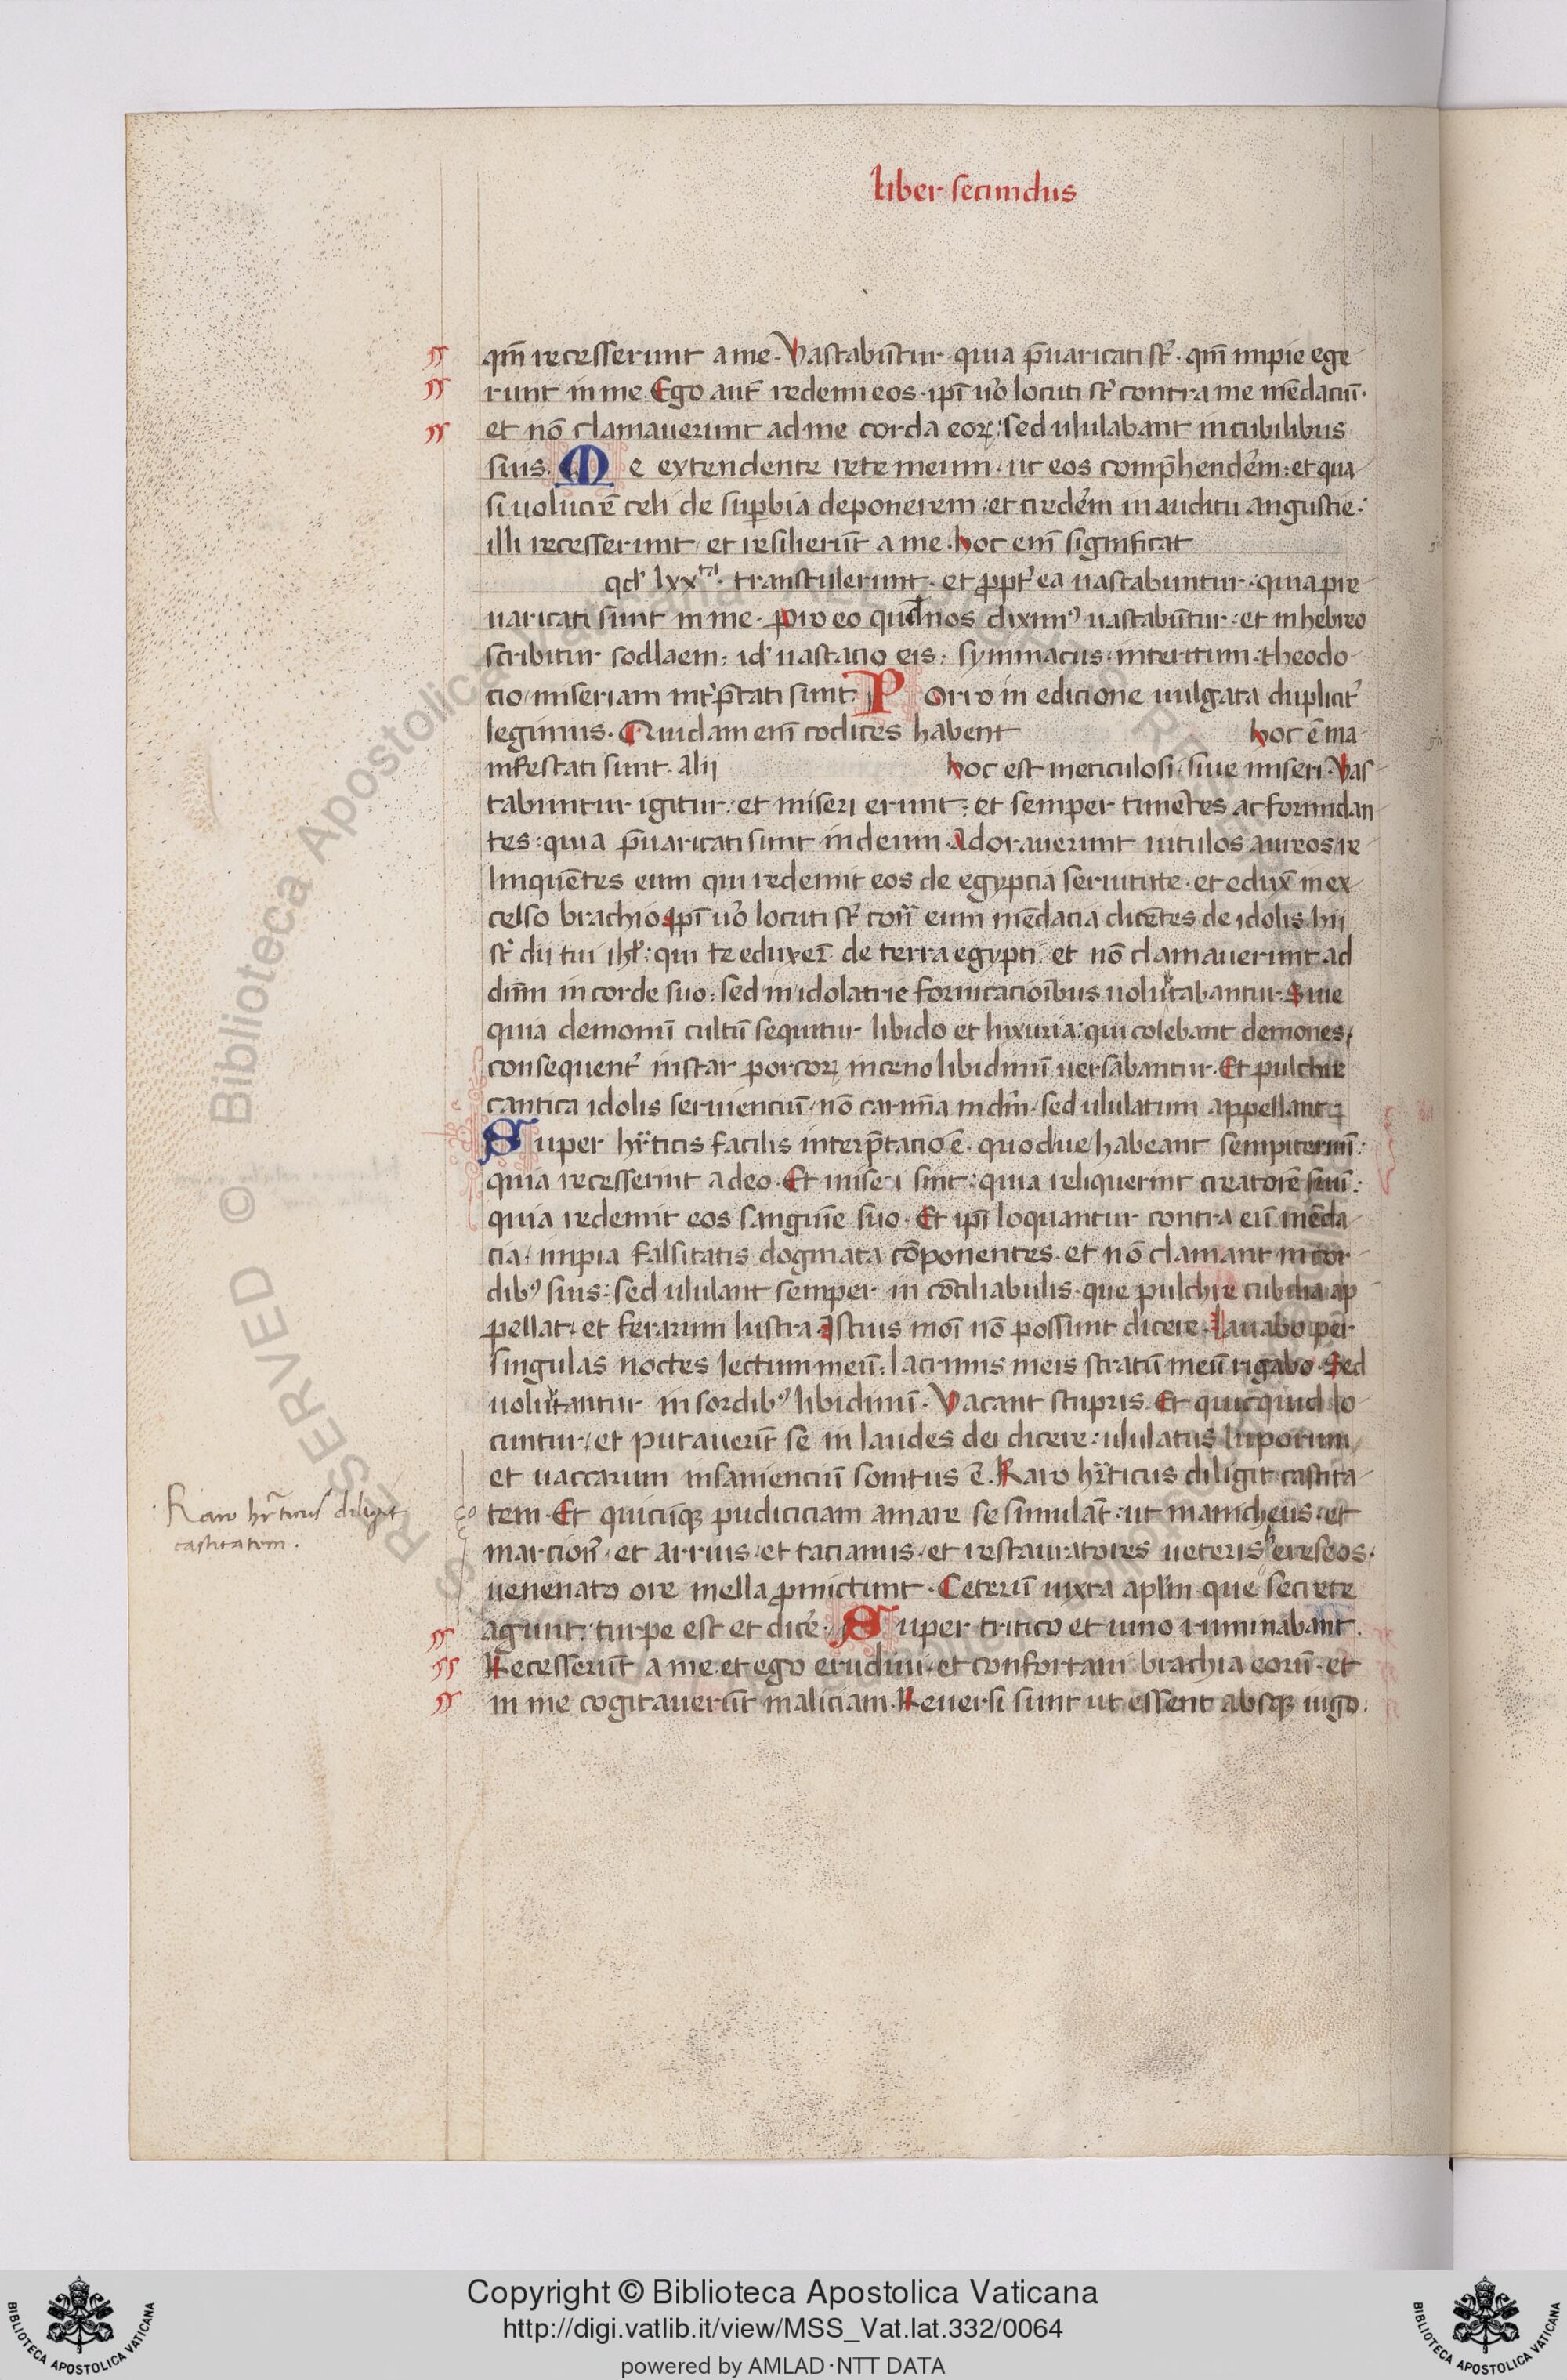 liber secundus
qm̄ recesserunt a me. Vastabūtur quia p̄uaricati st̄. qm̄ impie ege
runt in me. Ego aut̄ redemi eos. ip̄i u̾o locuti st̄ contra me mēdaciū.
et nō clamauerunt ad me corda eoꝝ: sed ululabant in cubilibus
suis. Me extendente rete meum ut eos comp̄hendēm: et qua
si uolucrē celi de sup̱bia deponerem: et eredēm in auditu angustie:
illi recesserunt et resilierūt a me. hoc em̄ significat
qd̾ lxxᵗᵃ. transtulerunt. et ꝓpt̾ ea uastabuntur. quia pre
uaricati sunt in me. Pro eo qud nos diximꝰ uastabūtur: et in hebreo
scribitur sodlaem: id̾ uastacio eis: symmacus interitum: theodo
cio miseriam int̾p̄tati sunt. Porro in edicione uulgata duplicit̾
legimus. Quidam em̄ codices habent hoc ē ma
nifestati sunt. alij hoc est meticulosi siue miseri. Vas
tabuntur igitur: et miseri erunt: et semper timētes ac formidan
tes: quia p̄uaricati sunt in deum. Adorauerunt uitulos aureos re
linquētes eum qui redemit eos de egyptia seruitute. et eduxͭ in ex
celso brachio. Ip̄i u̾o locuti st̄ cont̄ eum mēdacia dicētes de idolis. hij
st̄ dij tui ihl̄: qui te eduxer̄t de terra egypti. et nō clamauerunt ad
dn̄m in corde suo: sed in idolatrie fornicacionibus uolutabantur. Siue
quia demonū cultū sequitur libido et luxuria: qui colebant demones,
consequent̾ instar porcoꝝ in ceno libidinū uersabantur. Et pulchre
cantica idolis seruienciū nō carmīa in dn̄m sed ululatum appellant.
Super hr̄ticis facilis interp̄tacio ē. quod ue habeant sempiternū:
quia recesserint a deo. Et miseri sint: quia reliquerint creatorē suū:
quia redemit eos sanguīe suo. Et ip̄i loquantur contra eū mēda
cia impia falsitatis dogmata cōponentes. et nō clamant in cor
dibꝰ suis: sed ululant semper in cōciliabulis. que pulchre cubilia ap
pellat et ferarum lustra. Istius moī nō possunt dicere. Lauabo per
singulas noctes lectum meū: lacrimis meis stratū meū rigabo. Sed
uolutantur in sordibꝰ libidinū. Vacant stupris. Et quicquid lo
cuntur et putauerīt se in laudes dei dicere: ululatus luporum
et uaccarum insanienciū sonitus ē. Raro hr̄ticus diligit castita
tem. Et quicūqꝫ pudiciciam amare se simulāt: ut manicheus et
marcion̄ et arrius et tacianus et restauratores ueteris hereseos.
uenenato ore mella ꝓmictunt. Ceterū iuxta apl̄m que secrete
agunt: turpe est et dicē. Super tritico et uino ruminabant.
Recesserūt a me. et ego erudiui et confortaui brachia eorū. et
in me cogitauerūt maliciam. Reuersi sunt ut essent absqꝫ iugo.
Raro hr̄ticus diligit
castitatem.
RESERVED © Biblioteca Apostolica Vaticana
Copyright © Biblioteca Apostolica Vaticana
http://digi.vatlib.it/view/MSS_Vat.lat.332/0064
powered by AMLAD·NTT DATA
BIBLIOTECA APOSTOLICA VATICANA
BIBLIOTECA APOSTOLICA VATICANA